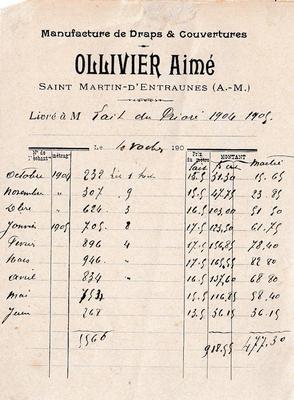 Manufacture de Draps & Couvertures
OLLIVIER Aimé
SAINT MARTIN-D'ENTRAUNES (A.-M.)
Livré à M Lait du Prioré 1904 1905.
Le 10 vaches 190
N° de l'échant. métrage Prix du mètre MONTANT Moitié
Octobre 1904 238 15.5 31.30 15.65
Novembre " 307 9 15.5 47.75 23.85
Dbre " 624 3 16.5 103.00 51.50
Janvier 1905 705 8 17.5 123.50 61.75
Fevrier " 896 4 17.5 156.85 78.40
Mars " 946 " 17.5 165.55 82.80
Avril " 834 " 16.5 137.60 68.80
Mai 753 15.5 116.85 58.40
Juin 268 13.5 36.15 36.15
5566 918.55 477.30